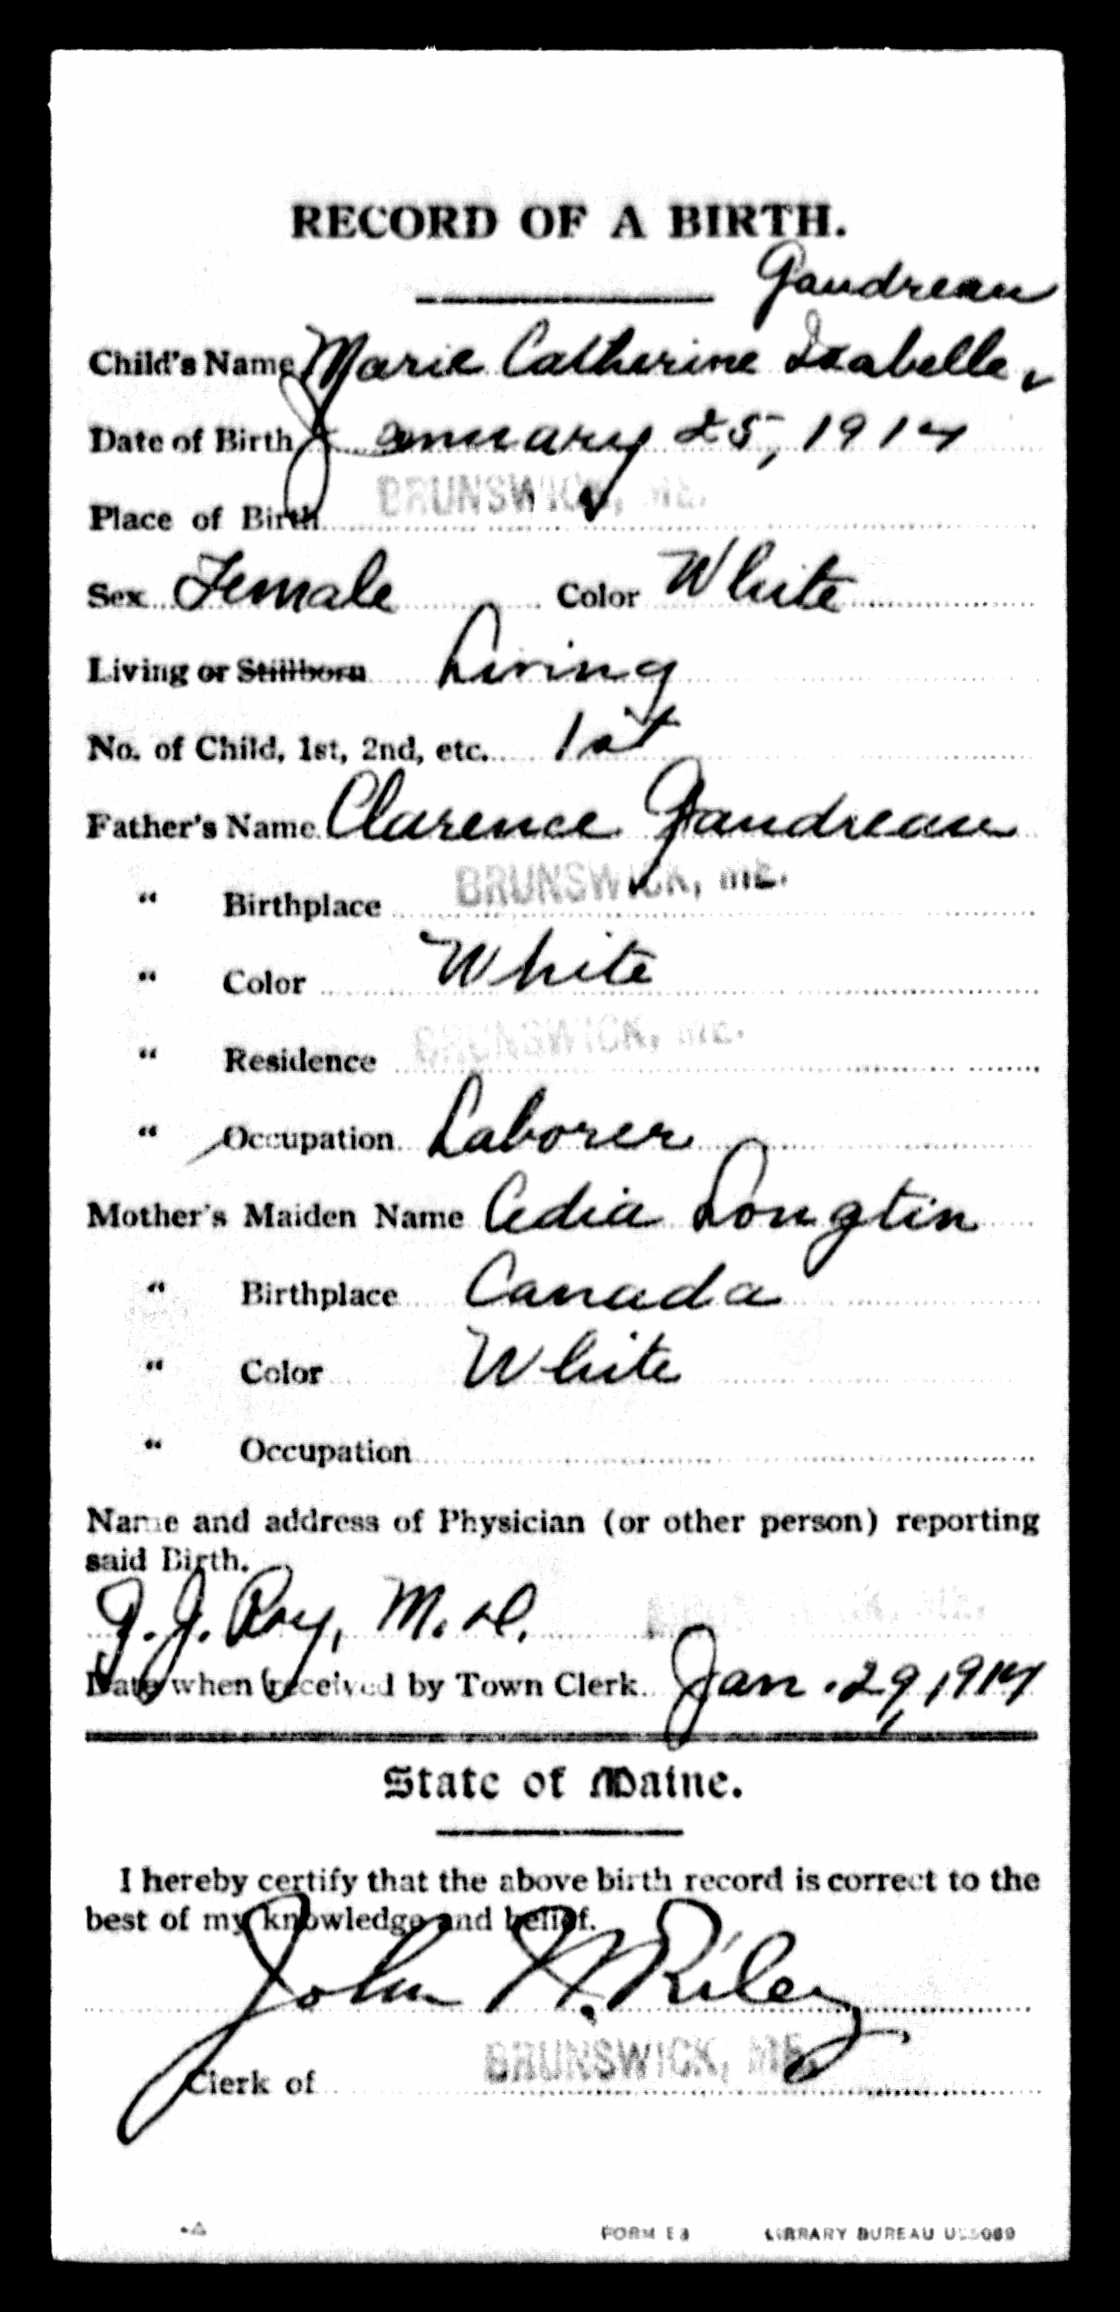 RECORD OF A BIRTH.
Gaudreau
Child's Name Marie Catherine Isabelle,
Date of Birth January 25, 1914
Place of Birth BRUNSWICK, ME.
Sex Female Color White
Living or Stillborn Living
No. of Child, 1st, 2nd, etc. 1st
Father's Name Clarence Gaudreau
" Birthplace BRUNSWICK, ME.
" Color White
" Residence BRUNSWICK, ME.
" Occupation Laborer
Mother's Maiden Name Cedia Longtin
" Birthplace Canada
" Color White
" Occupation
Name and address of Physician (or other person) reporting
said Birth.
J. Roy, M.D. BRUNSWICK, ME.
Date when received by Town Clerk. Jan. 29, 1914
State of Maine.
I hereby certify that the above birth record is correct to the
best of my knowledge and belief.
John W. Riley
Clerk of BRUNSWICK, ME.
FORM E3 LIBRARY BUREAU